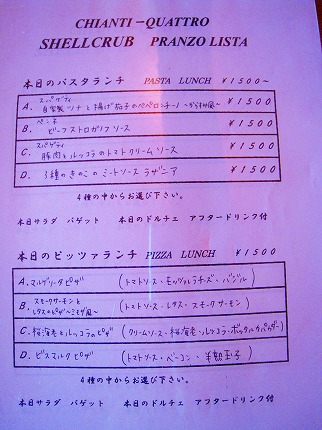 CHIANTI－QUATTRO
SHELLCRUB PRANZO LISTA
本日のパスタランチ PASTA LUNCH ￥1500～
A. スパゲティ 自家製ツナと揚げ茄子のペペロンチーノ ～からすみ風～ ￥1500
B. ペンネ ビーフストロガノフソース ￥1500
C. スパゲティ 豚肉とルッコラのトマトクリームソース ￥1500
D. 3種のきのこのミートソースラザニア ￥1500
4種の中からお選び下さい。
本日サラダ バゲット 本日のドルチェ アフタードリンク付
本日のピッツァランチ PIZZA LUNCH ￥1500
A. マルゲリータピザ (トマトソース・モッツァレラチーズ・バジル)
B. スモークサーモンとレタスのピザ (トマトソース・レタス・スモークサーモン)
C. 桜海老とルッコラのピザ (クリームソース・桜海老・ルッコラ・ボッタルガパウダー)
D. ビスマルクピザ (トマトソース・ベーコン・半熟玉子)
4種の中からお選び下さい。
本日サラダ バゲット 本日のドルチェ アフタードリンク付